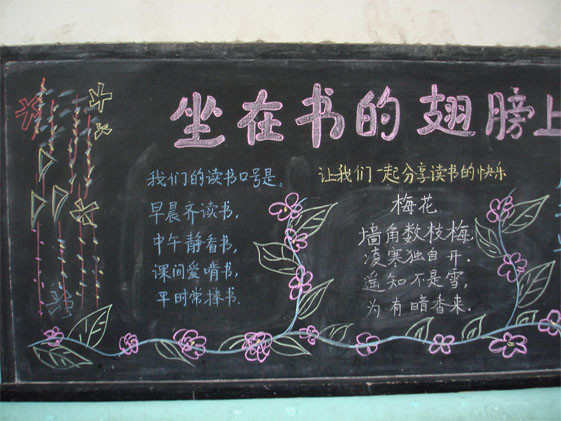 坐在书的翅膀上
我们的读书口号是。
早晨齐读书,
中午静看书,
课间爱啃书,
平时常捧书.
让我们一起分享读书的快乐
梅花
墙角数枝梅,
凌寒独自开.
遥知不是雪,
为有暗香来.